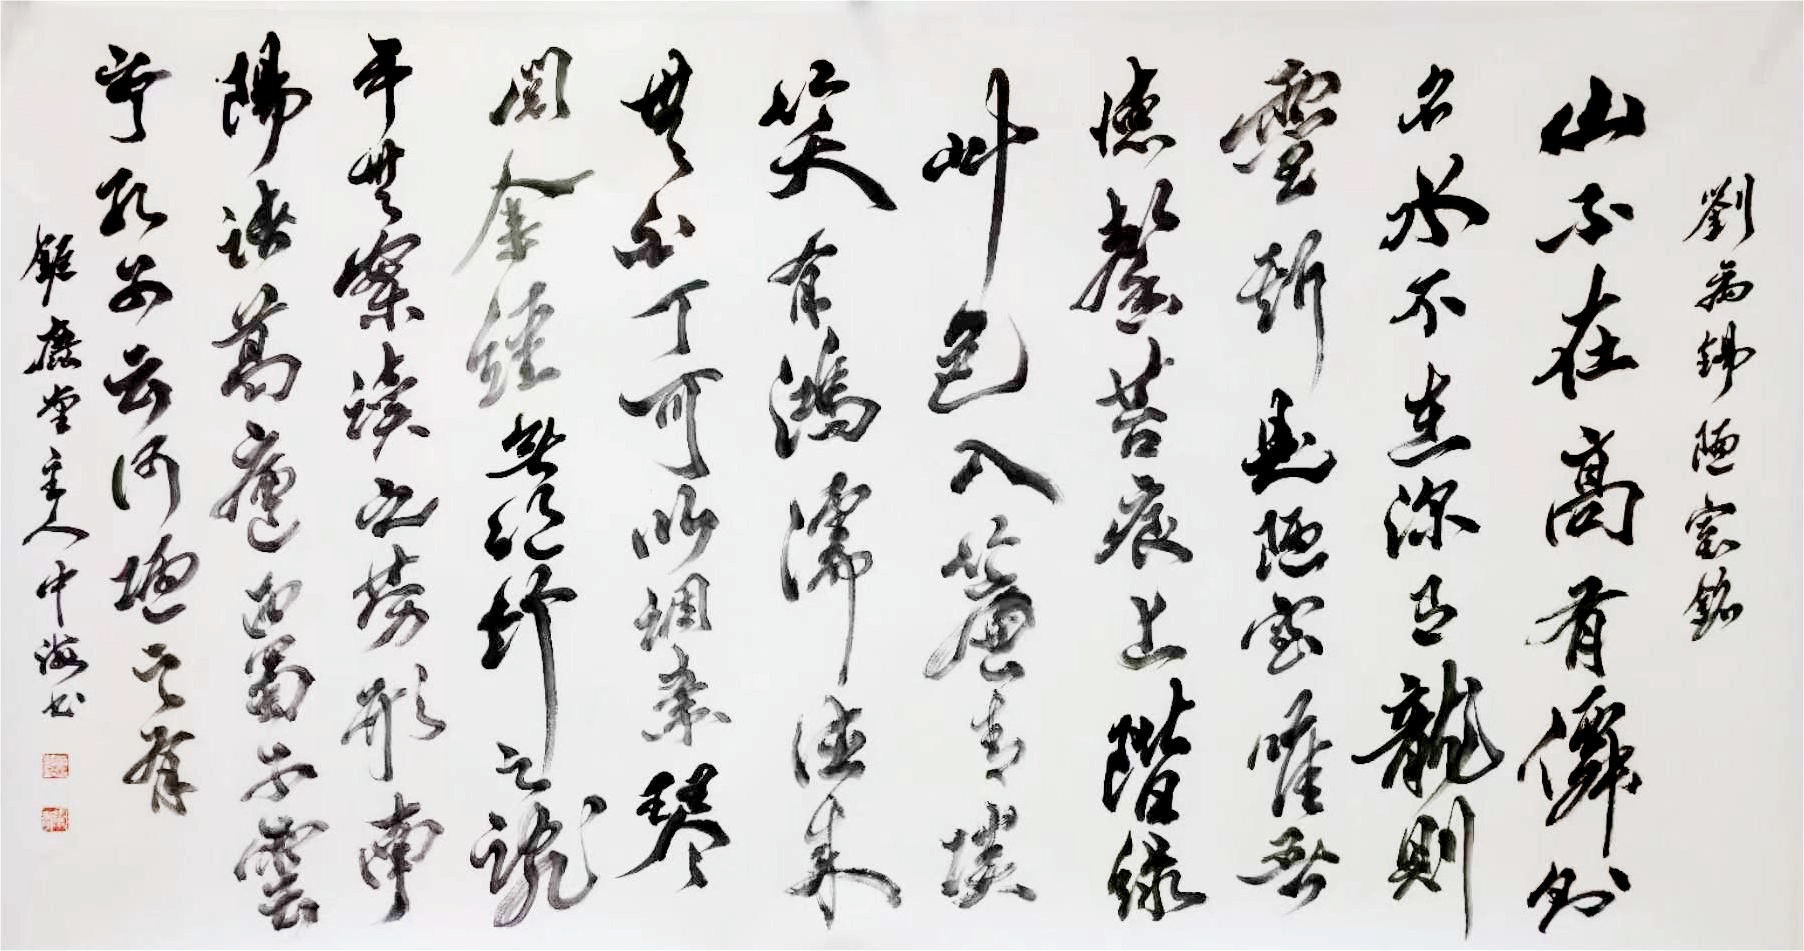 劉禹錫陋室銘
山不在高有僊則
名水不在深有龍則
靈斯是陋室唯吾
德馨苔痕上階綠
艸色入簾青談
笑有鴻儒往來
無白丁可以調素琴
閱金經無絲竹之亂
耳無案牘之勞形南
陽諸葛廬西蜀子雲
亭孔子云何陋之有
鉅鹿堂主人中海书